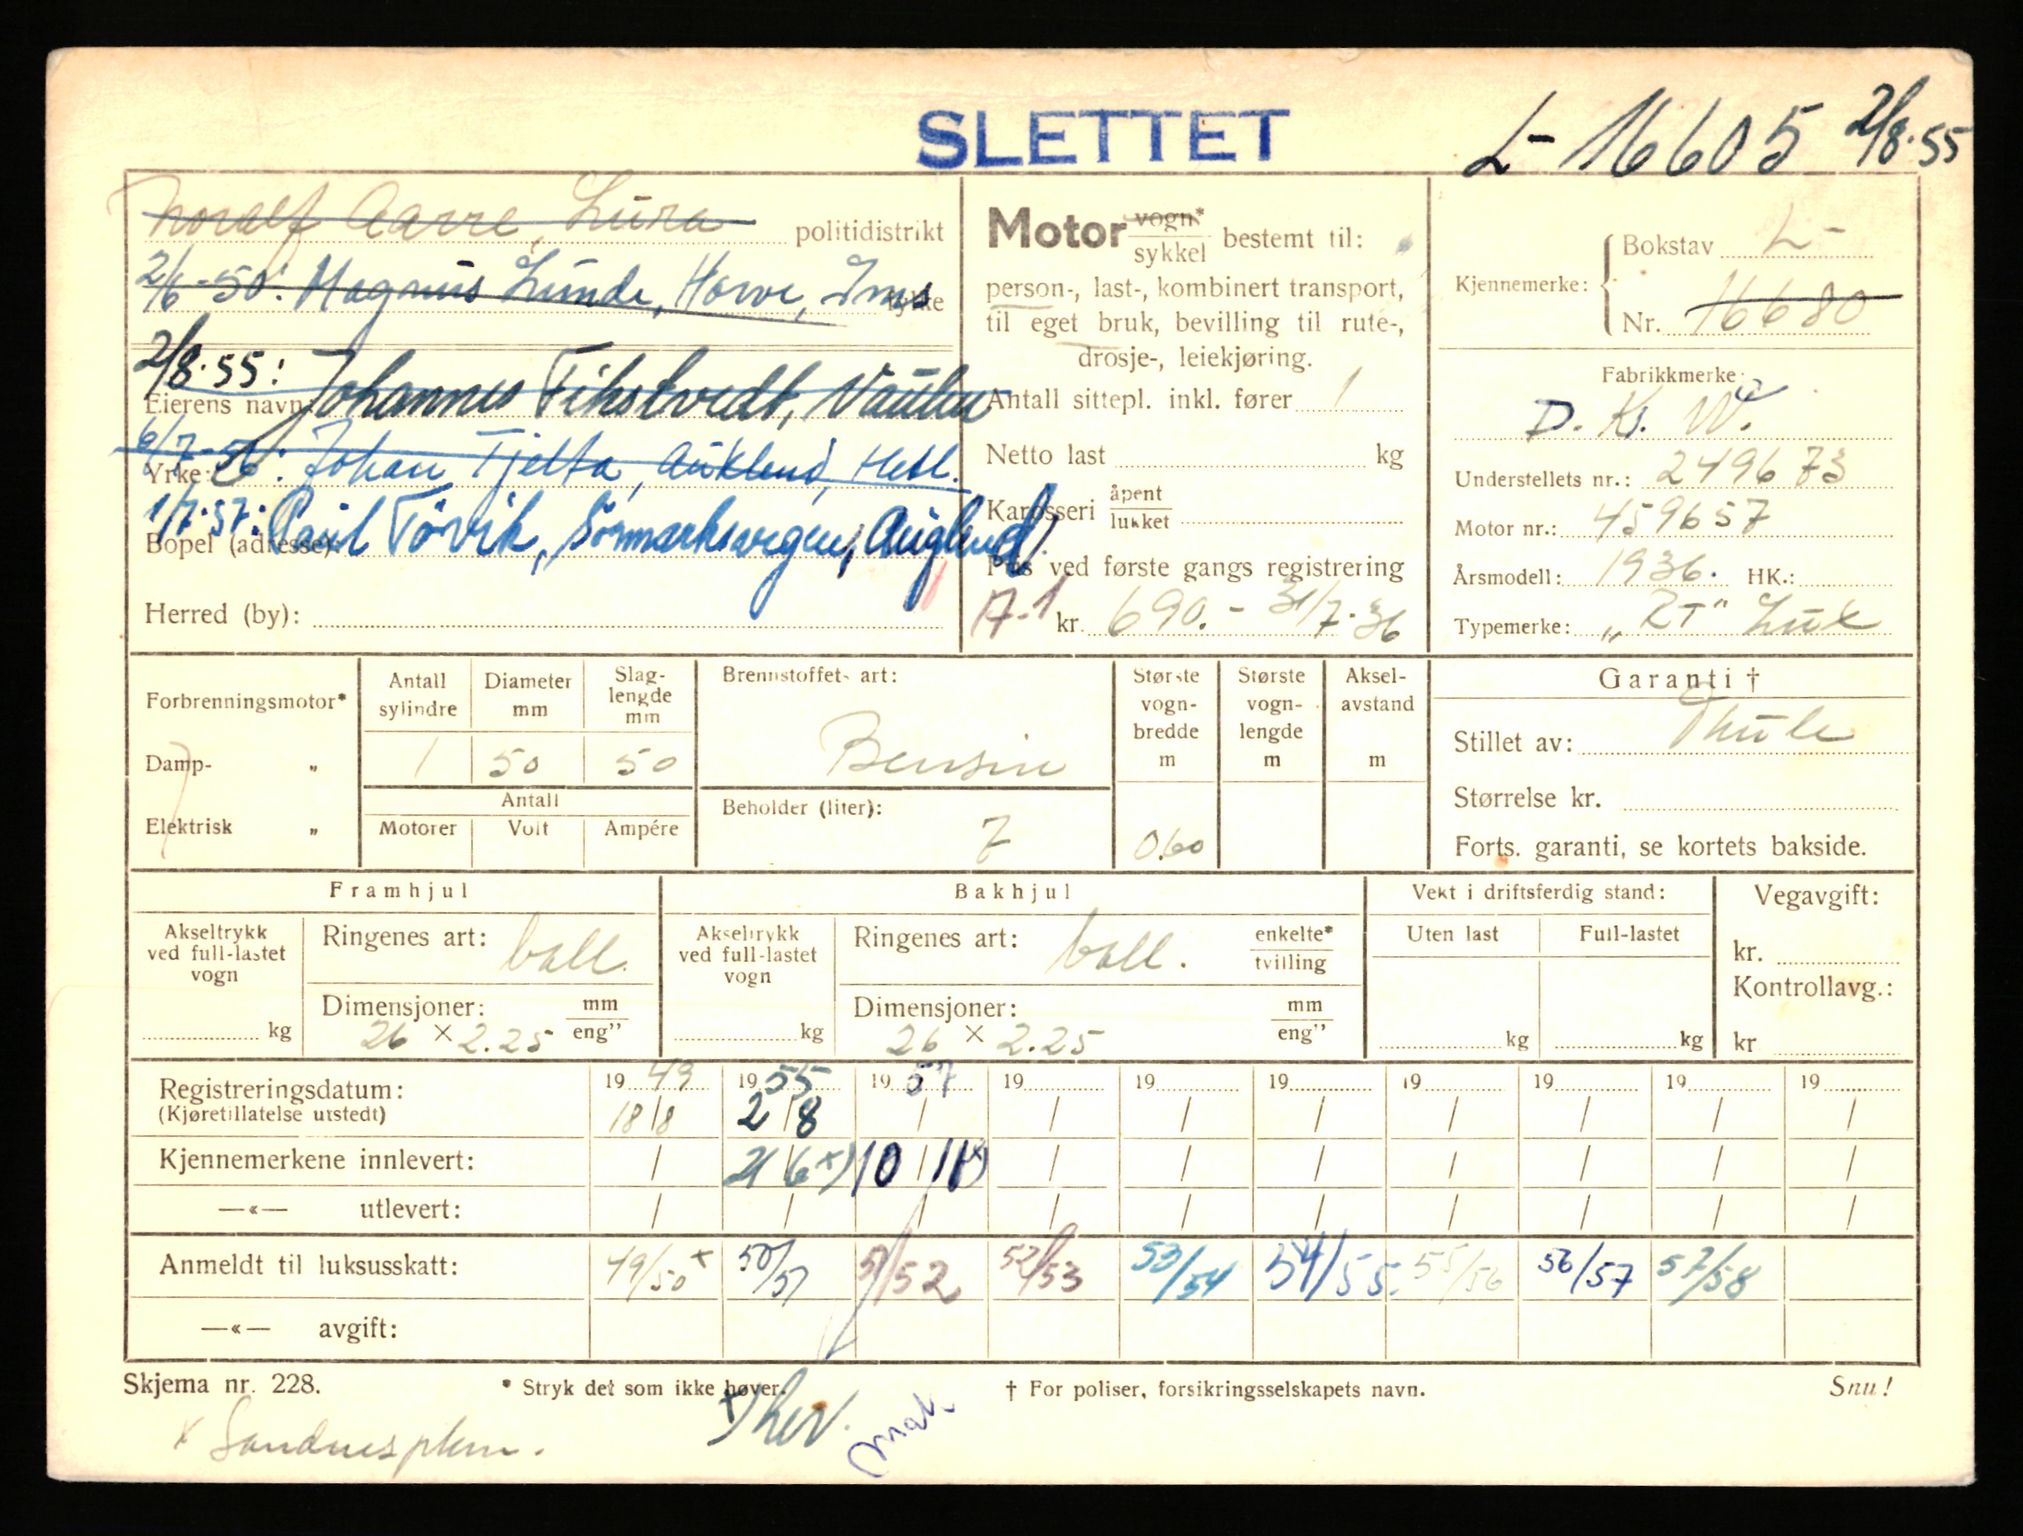 SLETTET
L- 16605 2/8.55
Aarre, Lura politidistrikt
2/6-50: Magnus Lunde, Horve, Ims rykke
2/8.55:
Eierens navn: Johannes Fihstvedt, Vaulen
6/7-56: Johan Tjelta, Auklend, Hetl.
Yrke:
1/7.57: Paul Törvik, Sörmarksvegen, Auglend
Bopel (adresse):
Herred (by):
Motor vogn* sykkel bestemt til:
person-, last-, kombinert transport,
til eget bruk, bevilling til rute-,
drosje-, leiekjøring.
Antall sittepl. inkl. fører 1
Netto last kg
Karosseri åpent lukket
Pris ved første gangs registrering
A-1 kr. 690.- 31/7-36
Kjennemerke:
Bokstav L-
Nr. 16680
Fabrikkmerke:
D. K. W.
Understellets nr.: 249673
Motor nr.: 459657
Årsmodell: 1936. HK.:
Typemerke: „RT" Lux
Forbrenningsmotor*
Damp- „
Elektrisk „
Antall sylindre
Diameter mm
Slag-lengde mm
1 50 50
Antall
Motorer Volt Ampére
Brennstoffets art:
Bensin
Beholder (liter):
7
Største vogn-bredde m
0.60
Største vogn-lengde m
Aksel-avstand m
Garanti †
Stillet av: Thule
Størrelse kr.
Forts. garanti, se kortets bakside.
Framhjul
Akseltrykk ved full-lastet vogn
kg
Ringenes art: ball.
Dimensjoner: mm eng"
26 × 2.25
Bakhjul
Akseltrykk ved full-lastet vogn
kg
Ringenes art: ball. enkelte* tvilling
Dimensjoner: mm eng"
26 × 2.25
Vekt i driftsferdig stand:
Uten last Full-lastet
kg kg
Vegavgift:
kr.
Kontrollavg.:
kr
Registreringsdatum: 1949 1955 1957 19 19 19 19 19 19 19
(Kjøretillatelse utstedt) 18/8 2/8 / / / / / / / /
Kjennemerkene innlevert: / 2/6 x) 10/11 x) / / / / / / /
—«— utlevert: / / / / / / / / / /
Anmeldt til luksusskatt: 49/50 x 50/51 51/52 52/53 53/54 54/55. 55/56 56/57 57/58
—«— avgift:
Skjema nr. 228. * Stryk det som ikke høver. † For poliser, forsikringsselskapets navn. Snu!
x Sandnes